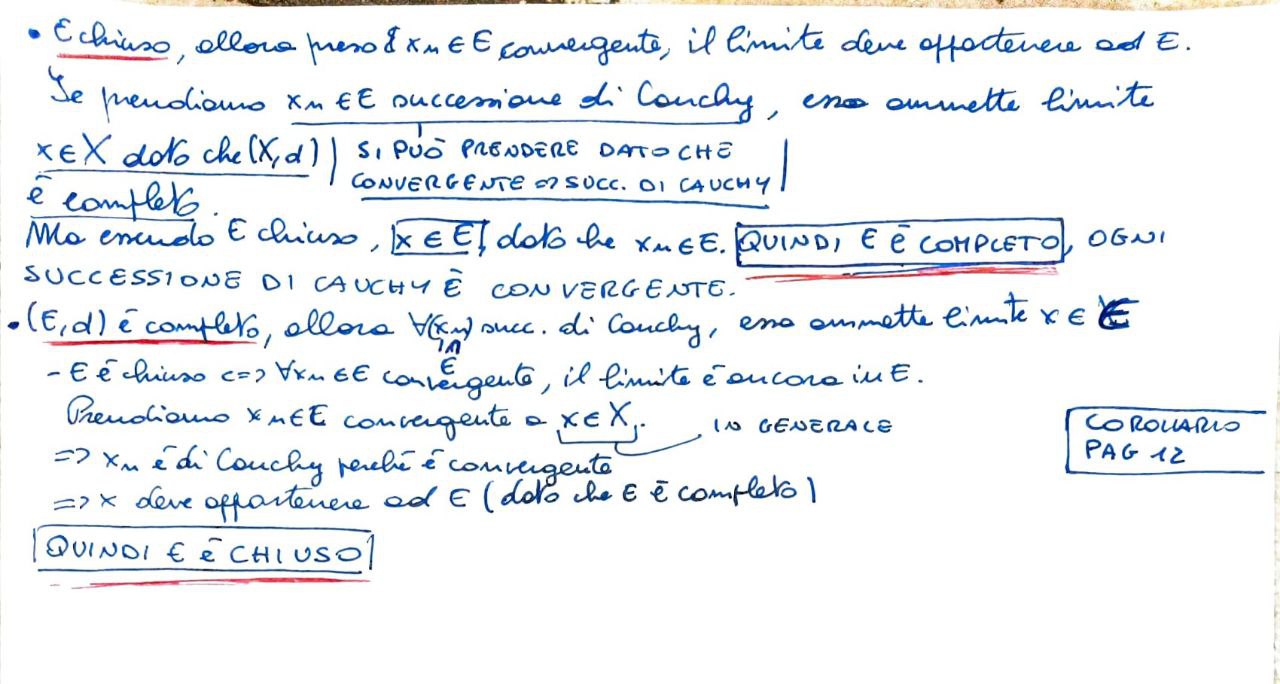 • E chiuso, allora preso {xn ∈ E convergente, il limite deve appartenere ad E.
Se prendiamo xn ∈ E successione di Cauchy, essa ammette limite
x ∈ X dato che (X,d)
è completo.
SI PUÒ PRENDERE DATO CHE
CONVERGENTE => SUCC. DI CAUCHY
Ma essendo E chiuso, x ∈ E, dato che xn ∈ E. QUINDI E È COMPLETO, OGNI
SUCCESSIONE DI CAUCHY È CONVERGENTE.
• (E,d) è completo, allora ∀(xn) succ. di Cauchy, essa ammette limite x ∈ E
∩
E
- E è chiuso <=> ∀xn ∈ E convergente, il limite è ancora in E.
Prendiamo xn ∈ E convergente a x ∈ X. IN GENERALE
=> xn è di Cauchy perché è convergente
=> x deve appartenere ad E (dato che E è completo)
QUINDI E È CHIUSO
COROLLARIO
PAG 12